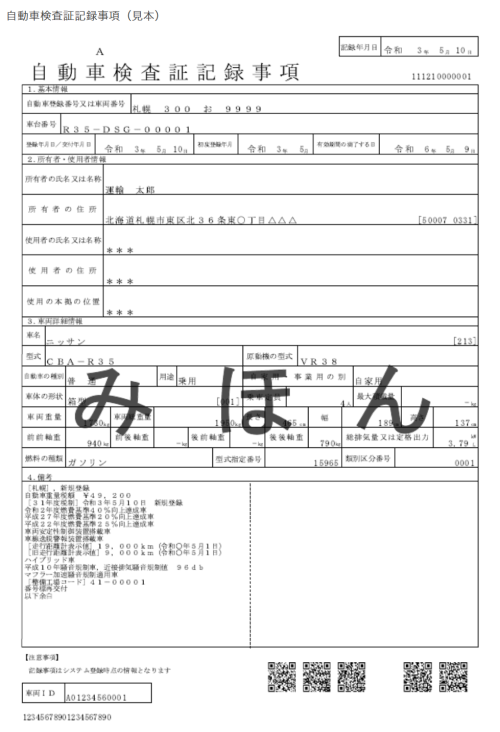 自動車検査証記録事項（見本）
記録年月日 令和 3年 5月 10日
A
自動車検査証記録事項
111210000001
1.基本情報
自動車登録番号又は車両番号 札幌 300 お 9999
車台番号 R35-DSG-00001
登録年月日／交付年月日 令和 3年 5月 10日 初度登録年月 令和 3年 5月 有効期間の満了する日 令和 6年 5月 9日
2.所有者・使用者情報
所有者の氏名又は名称 運輸 太郎
所有者の住所 北海道札幌市東区北36条東○丁目△△△ [50007 0331]
使用者の氏名又は名称 ＊＊＊
使用者の住所 ＊＊＊
使用の本拠の位置 ＊＊＊
3.車両詳細情報
車名 ニッサン [213]
型式 CBA-R35 原動機の型式 VR38
自動車の種別 普 通 用途 乗用 事業用の別 自家用
車体の形状 [001] 4人 -kg
車両重量 幅 189 137cm
みほん
前前軸重 940kg 前後軸重 -kg 後前軸重 -kg 後後軸重 790kg 総排気量又は定格出力 3.79 L
燃料の種類 ガソリン 型式指定番号 15965 類別区分番号 0001
4.備考
［札幌］，新規登録
自動車重量税額 ￥49，200
［31年度税制］令和3年5月10日 新規登録
令和2年度燃費基準40％向上達成車
平成27年度燃費基準20％向上達成車
平成22年度燃費基準25％向上達成車
車両安定性制御装置搭載車
車線逸脱警報装置搭載車
［走行距離計表示値］19，000km（令和○年5月1日）
［旧走行距離計表示値］9，000km（令和○年5月1日）
ハイブリッド車
平成10年騒音規制車，近接排気騒音規制値 96db
マフラー加速騒音規制適用車
［整備工場コード］41-00001
番号標再交付
以下余白
【注意事項】
記録事項はシステム登録時点の情報となります
車両ID A01234560001
12345678901234567890